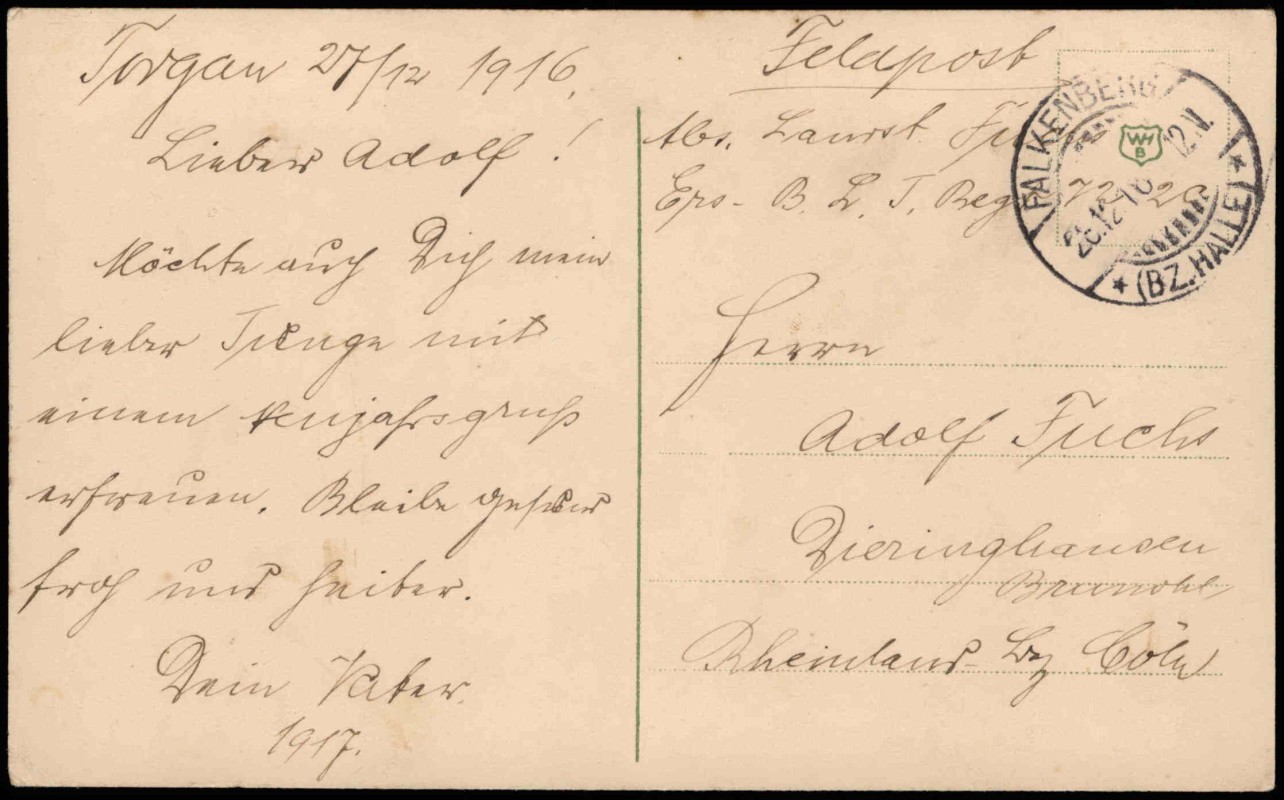 Torgau 27/12 1916.
Lieber Adolf!
Möchte auch Dich mein
lieber Junge mit
einem Neujahrsgruß
erfreuen. Bleibe gesund
froh und heiter.
Dein Vater.
1917.
Feldpost
Abs. Landst.
Ers- B. L. I. Reg 72
FALKENBERG
(BZ. HALLE)
28.12.16 12.N.
WH
B
Herrn
Adolf Fuchs
Dieringhausen
Rheinland Bz Cöln